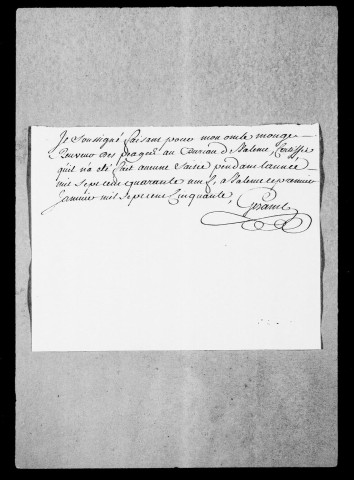 Je soussigné faisant pour mon oncle monge
Receveur des traques au Bureau d Stalene, Certiffie
quil na été fait aucune saisie pendant lannée
mil sept cent quarante neuf, a Stalene ce premier
Janvier mil sept cent Cinquante,